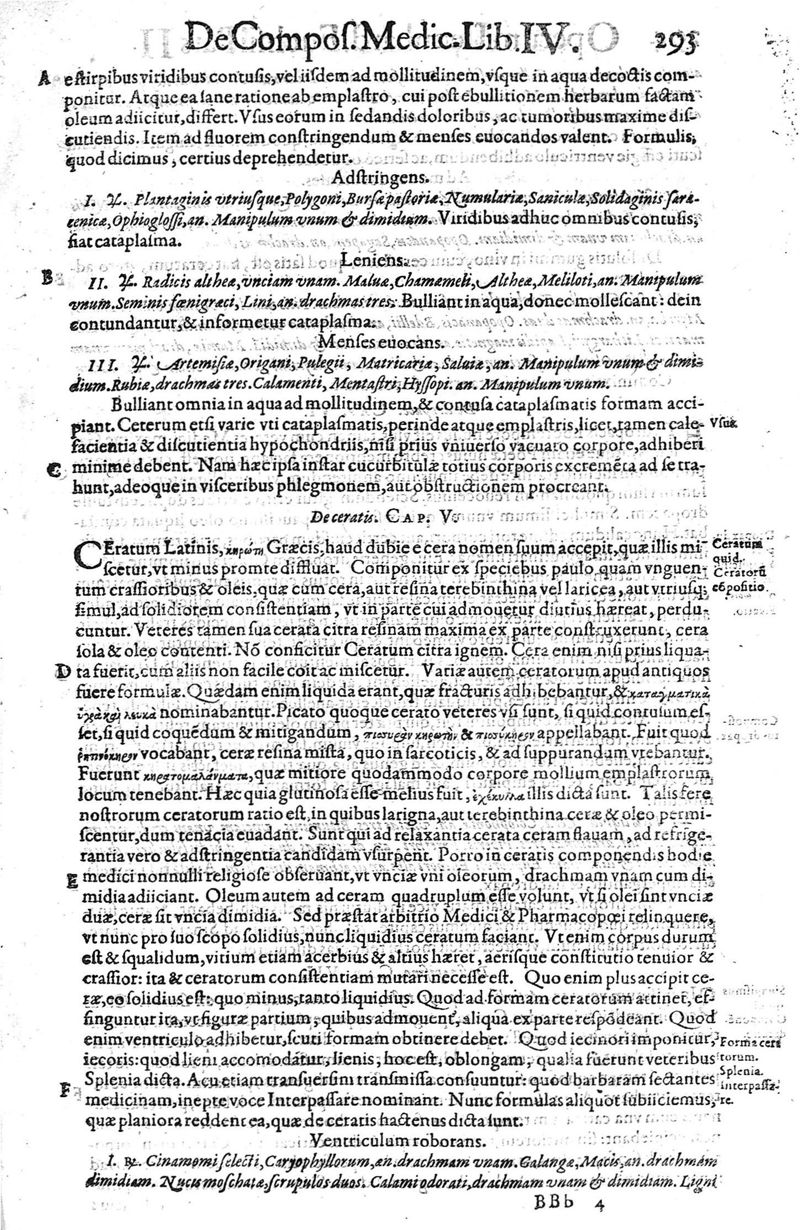 De Compos. Medic. Lib. IV. 293
A e stirpibus viridibus contusis, vel iisdem ad mollitudinem, vsque in aqua decoctis com-
ponitur. Atque ea sane ratione ab emplastro, cui post ebullitionem herbarum factam
oleum adiicitur, differt. Vsus eorum in sedandis doloribus, ac tumoribus maxime dis-
cutiendis. Item ad fluorem constringendum & menses euocandos valent. Formulis,
quod dicimus, certius deprehendetur.
Adstringens.
I. ℞. Plantaginis vtriusque, Polygoni, Bursæ pastoriæ, Numulariæ, Saniculæ, Solidaginis sara-
cenicæ, Ophioglossi, an. Manipulum vnum & dimidium. Viridibus adhuc omnibus contusis,
fiat cataplasma.
Leniens.
B II. ℞. Radicis altheæ, vnciam vnam. Maluæ, Chamæmeli, Altheæ, Meliloti, an. Manipulum
vnum. Seminis fœnigræci, Lini, an. drachmas tres. Bulliant in aqua, donec mollescant: dein
contundantur, & informetur cataplasma.
Menses euocans.
III. ℞. Artemisiæ, Origani, Pulegii, Matricariæ, Saluiæ, an. Manipulum vnum & dimi-
dium. Rubiæ, drachmas tres. Calamenti, Mentastri, Hyssopi. an. Manipulum vnum.
Bulliant omnia in aqua ad mollitudinem, & contusa cataplasmatis formam acci-
piant. Ceterum etsi varie vti cataplasmatis, perinde atque emplastris, licet, tamen cale- Vsus
facientia & discutientia hypochondriis, nisi prius vniuerso vacuato corpore, adhiberi
C minime debent. Nam hæc ipsa instar cucurbitulæ totius corporis excremēta ad se tra-
hunt, adeoque in visceribus phlegmonem, aut obstructionem procreant.
De ceratis. CAP. V.
CEratum Latinis, κηρωτὴ Græcis, haud dubie e cera nomen suum accepit, quæ illis mi- Ceratum
scetur, vt minus promte diffluat. Componitur ex speciebus paulo, quam vnguen- quid.
tum crassioribus & oleis, quæ cum cera, aut resina terebinthina vel laricea, aut vtriusq; Ceratorū
simul, ad solidiorem consistentiam, vt in parte cui admouetur diutius hæreat, perdu- cōpositio.
cuntur. Veteres tamen sua cerata citra resinam maxima ex parte construxerunt, cera
sola & oleo contenti. Nō conficitur Ceratum citra ignem. Cera enim nisi prius liqua-
D ta fuerit, cum aliis non facile coit ac miscetur. Variæ autem ceratorum apud antiquos
fuere formulæ. Quædam enim liquida erant, quæ fracturis adhibebantur, & καταγματικὰ
ὑγρὰ καὶ λευκὰ nominabantur. Picato quoque cerato veteres vsi sunt, si quid contusum es-
set, si quid coquēdum & mitigandum, & appellabant. Fuit quod
vocabant, ceræ resina mista, quo in sarcoticis, & ad suppurandum vtebantur.
Fuerunt κηρομαλάγματα, quæ mitiore quodammodo corpore mollium emplastrorum
locum tenebant. Hæc quia glutinosa esse melius fuit, illis dicta sunt. Talis fere
nostrorum ceratorum ratio est, in quibus larigna, aut terebinthina ceræ & oleo permi-
scentur, dum tenacia euadant. Sunt qui ad relaxantia cerata ceram flauam, ad refrige-
rantia vero & adstringentia candidam vsurpent. Porro in ceratis componendis hodie
E medici nonnulli religiose obseruant, vt vnciæ vni oleorum, drachmam vnam cum di-
midia adiiciant. Oleum autem ad ceram quadruplum esse volunt, vt si olei sint vnciæ
duæ, ceræ sit vncia dimidia. Sed præstat arbitrio Medici & Pharmacopœi relinquere,
vt nunc pro suo scopo solidius, nunc liquidius ceratum faciant. Vt enim corpus durum
est & squalidum, vitium etiam acerbius & altius hæret, aerisque constitutio tenuior &
crassior: ita & ceratorum consistentiam mutari necesse est. Quo enim plus accipit ce-
ræ, eo solidius est: quo minus, tanto liquidius. Quod ad formam ceratorum attinet, ef-
finguntur ita, vt figuræ partium, quibus admouent, aliqua ex parte respōdeant. Quod
enim ventriculo adhibetur, scuti formam obtinere debet. Quod iecinori imponitur, Forma cera
iecoris: quod lieni accomodātur, lienis, hoc est, oblongam, qualia fuerunt veteribus torum.
Splenia dicta. Acu etiam transuersim transmissa consuuntur: quod barbaram sectantes Splenia.
F medicinam, inepte voce Interpassare nominant. Nunc formulas aliquot subiiciemus, interpassa-
quæ planiora reddent ea, quæ de ceratis hactenus dicta sunt. re.
Ventriculum roborans.
I. ℞. Cinamomi selecti, Caryophyllorum, an. drachmam vnam. Galangæ, Macis, an. drachmam
dimidiam. Nucis moschatæ, scrupulos duos. Calami odorati, drachmam vnam & dimidiam. Ligni
BBb 4